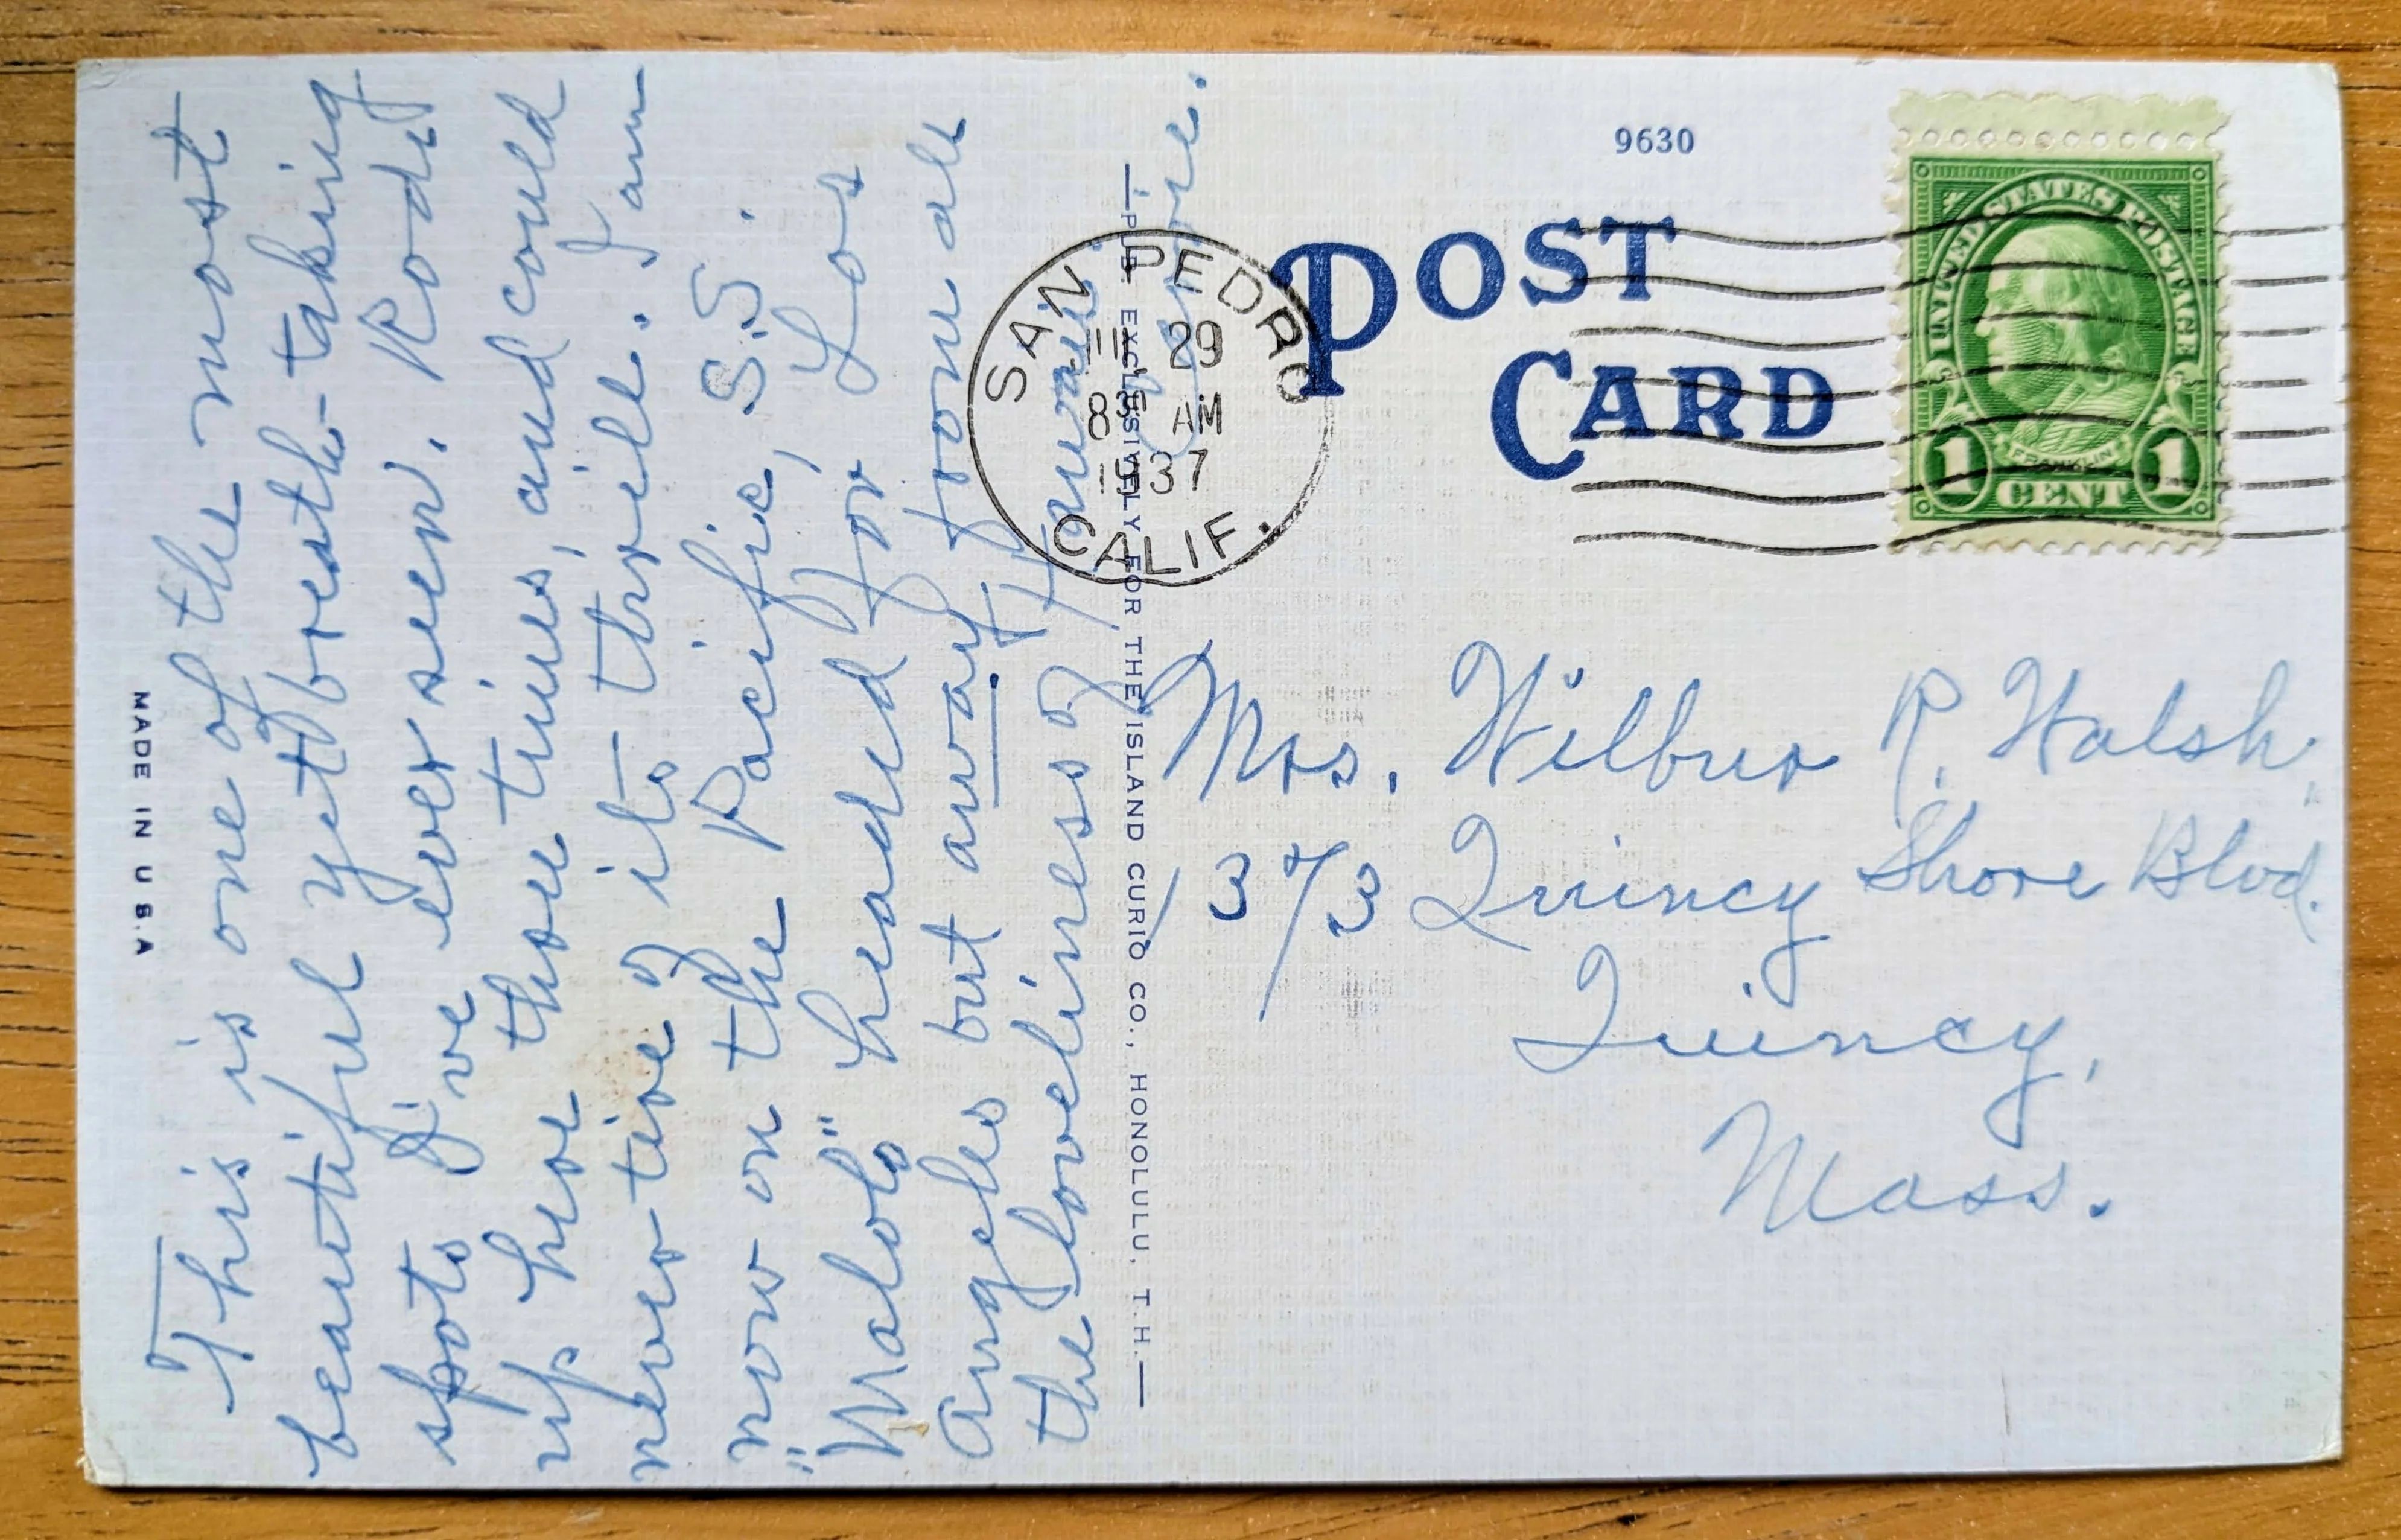 This is one of the most
beautiful yet breath-taking
spots I've ever seen. Rode
up here three times, and could
never tire of its thrill. I am
now on the Pacific, S.S.
"Malolo" headed for Los
Angeles but away from all
the loveliness of Hawaii.
MADE IN U.S.A
PUB. EXCLUSIVELY FOR THE ISLAND CURIO CO., HONOLULU, T.H.
9630
POST
CARD
SAN PEDRO
29
8 AM
1937
CALIF.
UNITED STATES POSTAGE
FRANKLIN
1 CENT 1
Mrs. Wilbur R. Walsh,
373 Quincy Shore Blvd.
Quincy,
Mass.